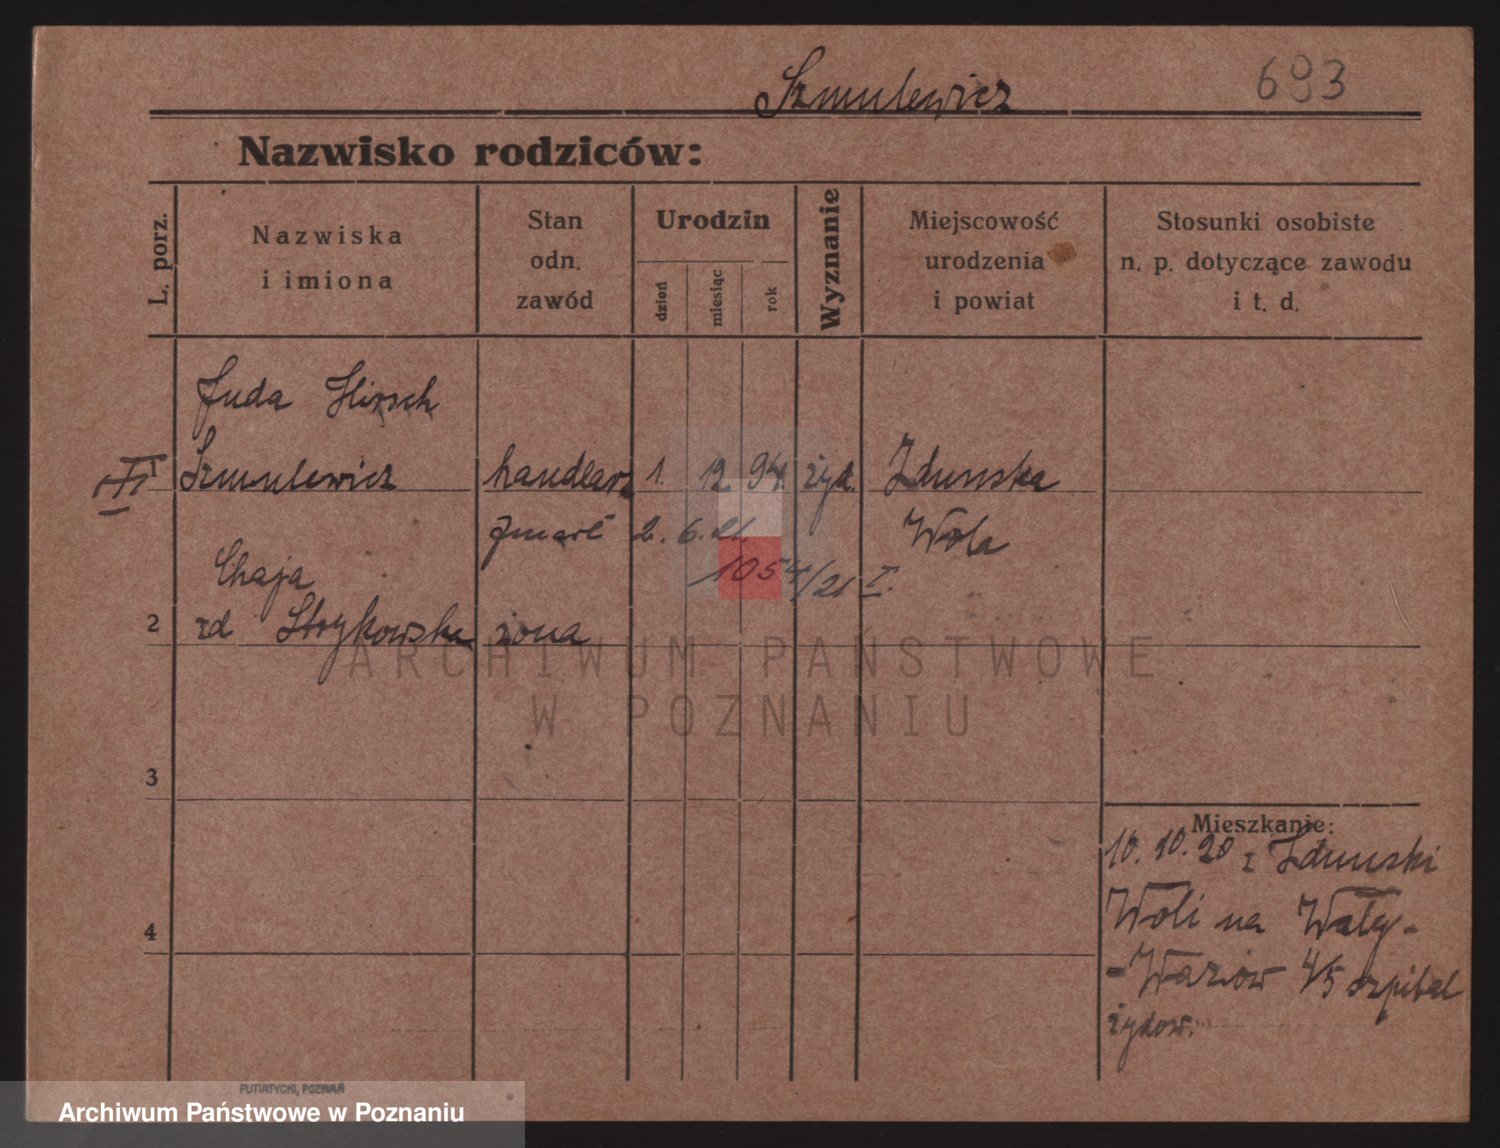 Szmulewicz 693
Nazwisko rodziców:
L. porz.
Nazwiska
i imiona
Stan
odn.
zawód
Urodzin
dzień
miesiąc
rok
Wyznanie
Miejscowość
urodzenia
i powiat
Stosunki osobiste
n. p. dotyczące zawodu
i t. d.
Juda Hirsch
III 1 Szmulewicz handlarz 1. 12. 94. żyd. Zdunska
zmarł 2. 6. 21. Wola
1054/21 I.
Chaja
2 zd Strykowska żona
ARCHIWUM PAŃSTWOWE
W POZNANIU
3
Mieszkanie:
10. 10. 20 z Zdunski
Woli na Wały-
4
-Wazów 4/5 szpital
żydow.
PUTIATYCKI, POZNAŃ
Archiwum Państwowe w Poznaniu